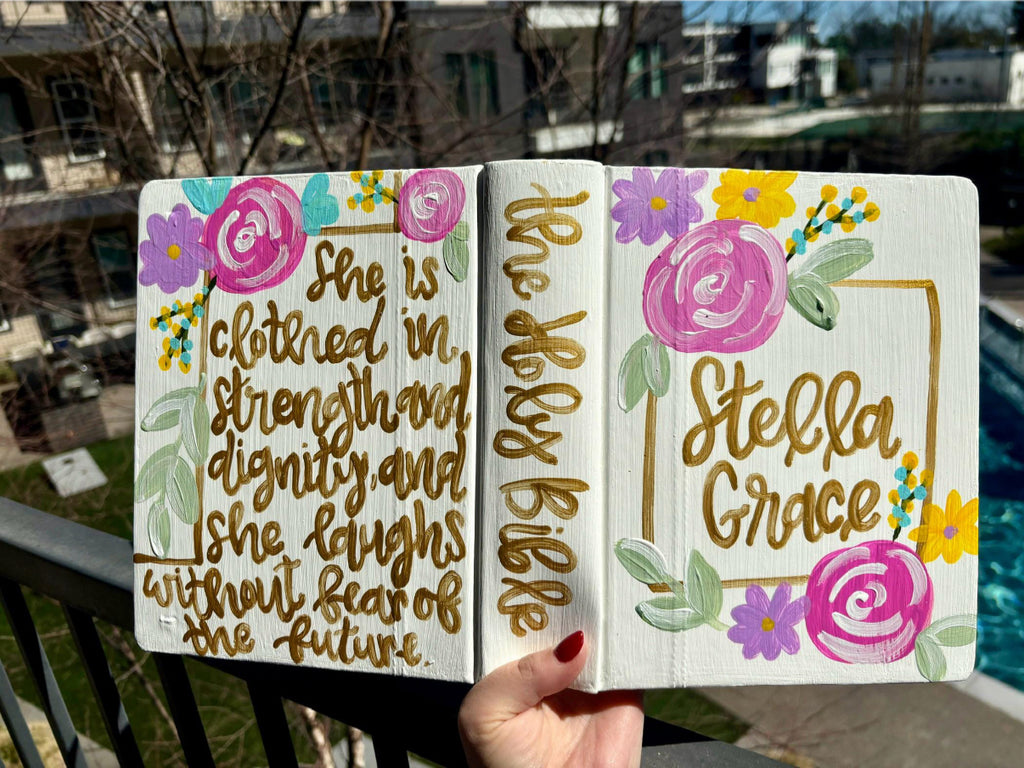 She is
clothed in
strength, and
dignity, and
she laughs
without fear of
the future.
the Holy Bible
Stella
Grace